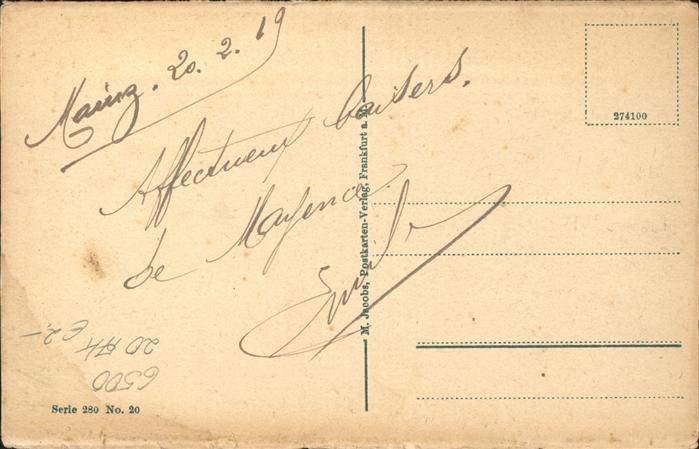 Mainz. 20. 2. 19
Affectueux baisers.
de Mayence
Emile
274100
M. Jacobs, Postkarten-Verlag, Frankfurt a. M.
6500
20 AH
€ 2,-
Serie 280 No. 20